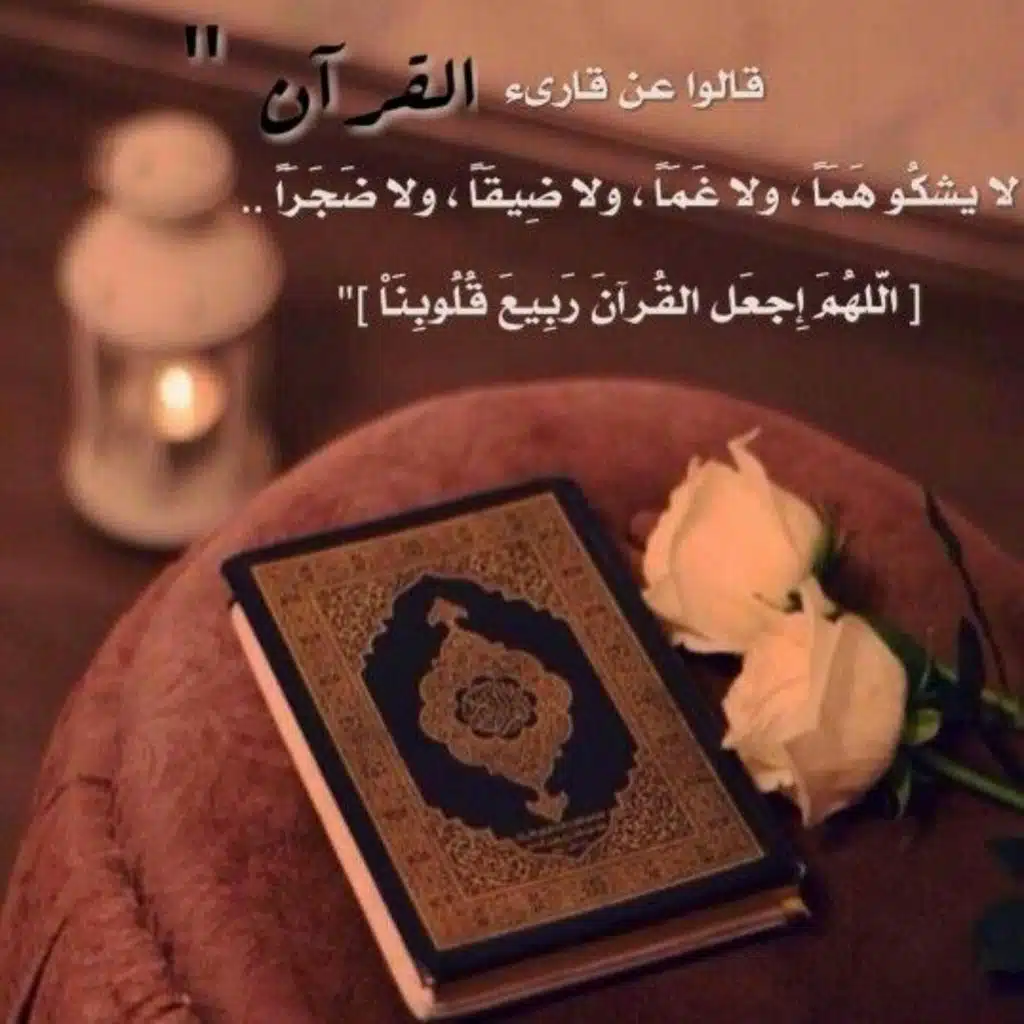 قالوا عن قارىء القرآن "
لا يشكُو هَمَاً ، ولا غَمَاً ، ولا ضِيقَاً ، ولا ضَجَرَاً ..
[ الّلهُمَ إِجعَل القُرآنَ رَبِيعَ قُلُوبِنَاْ ]"